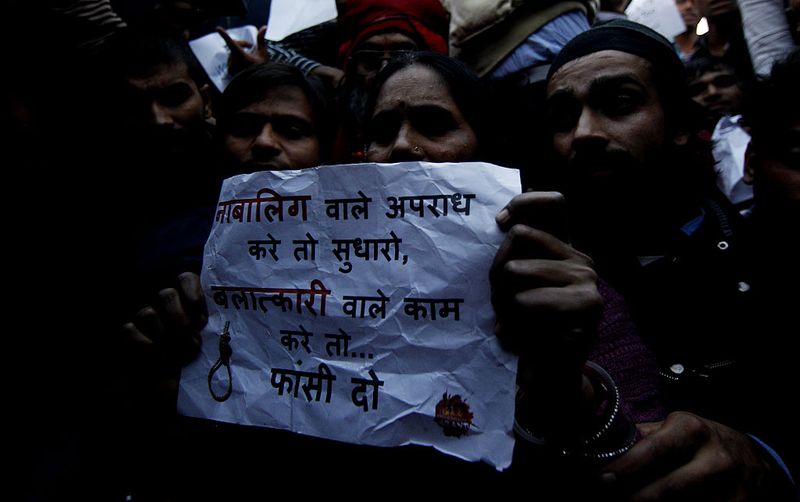 नाबालिग वाले अपराध
करे तो सुधारो,
बलात्कारी वाले काम
करे तो...
फांसी दो